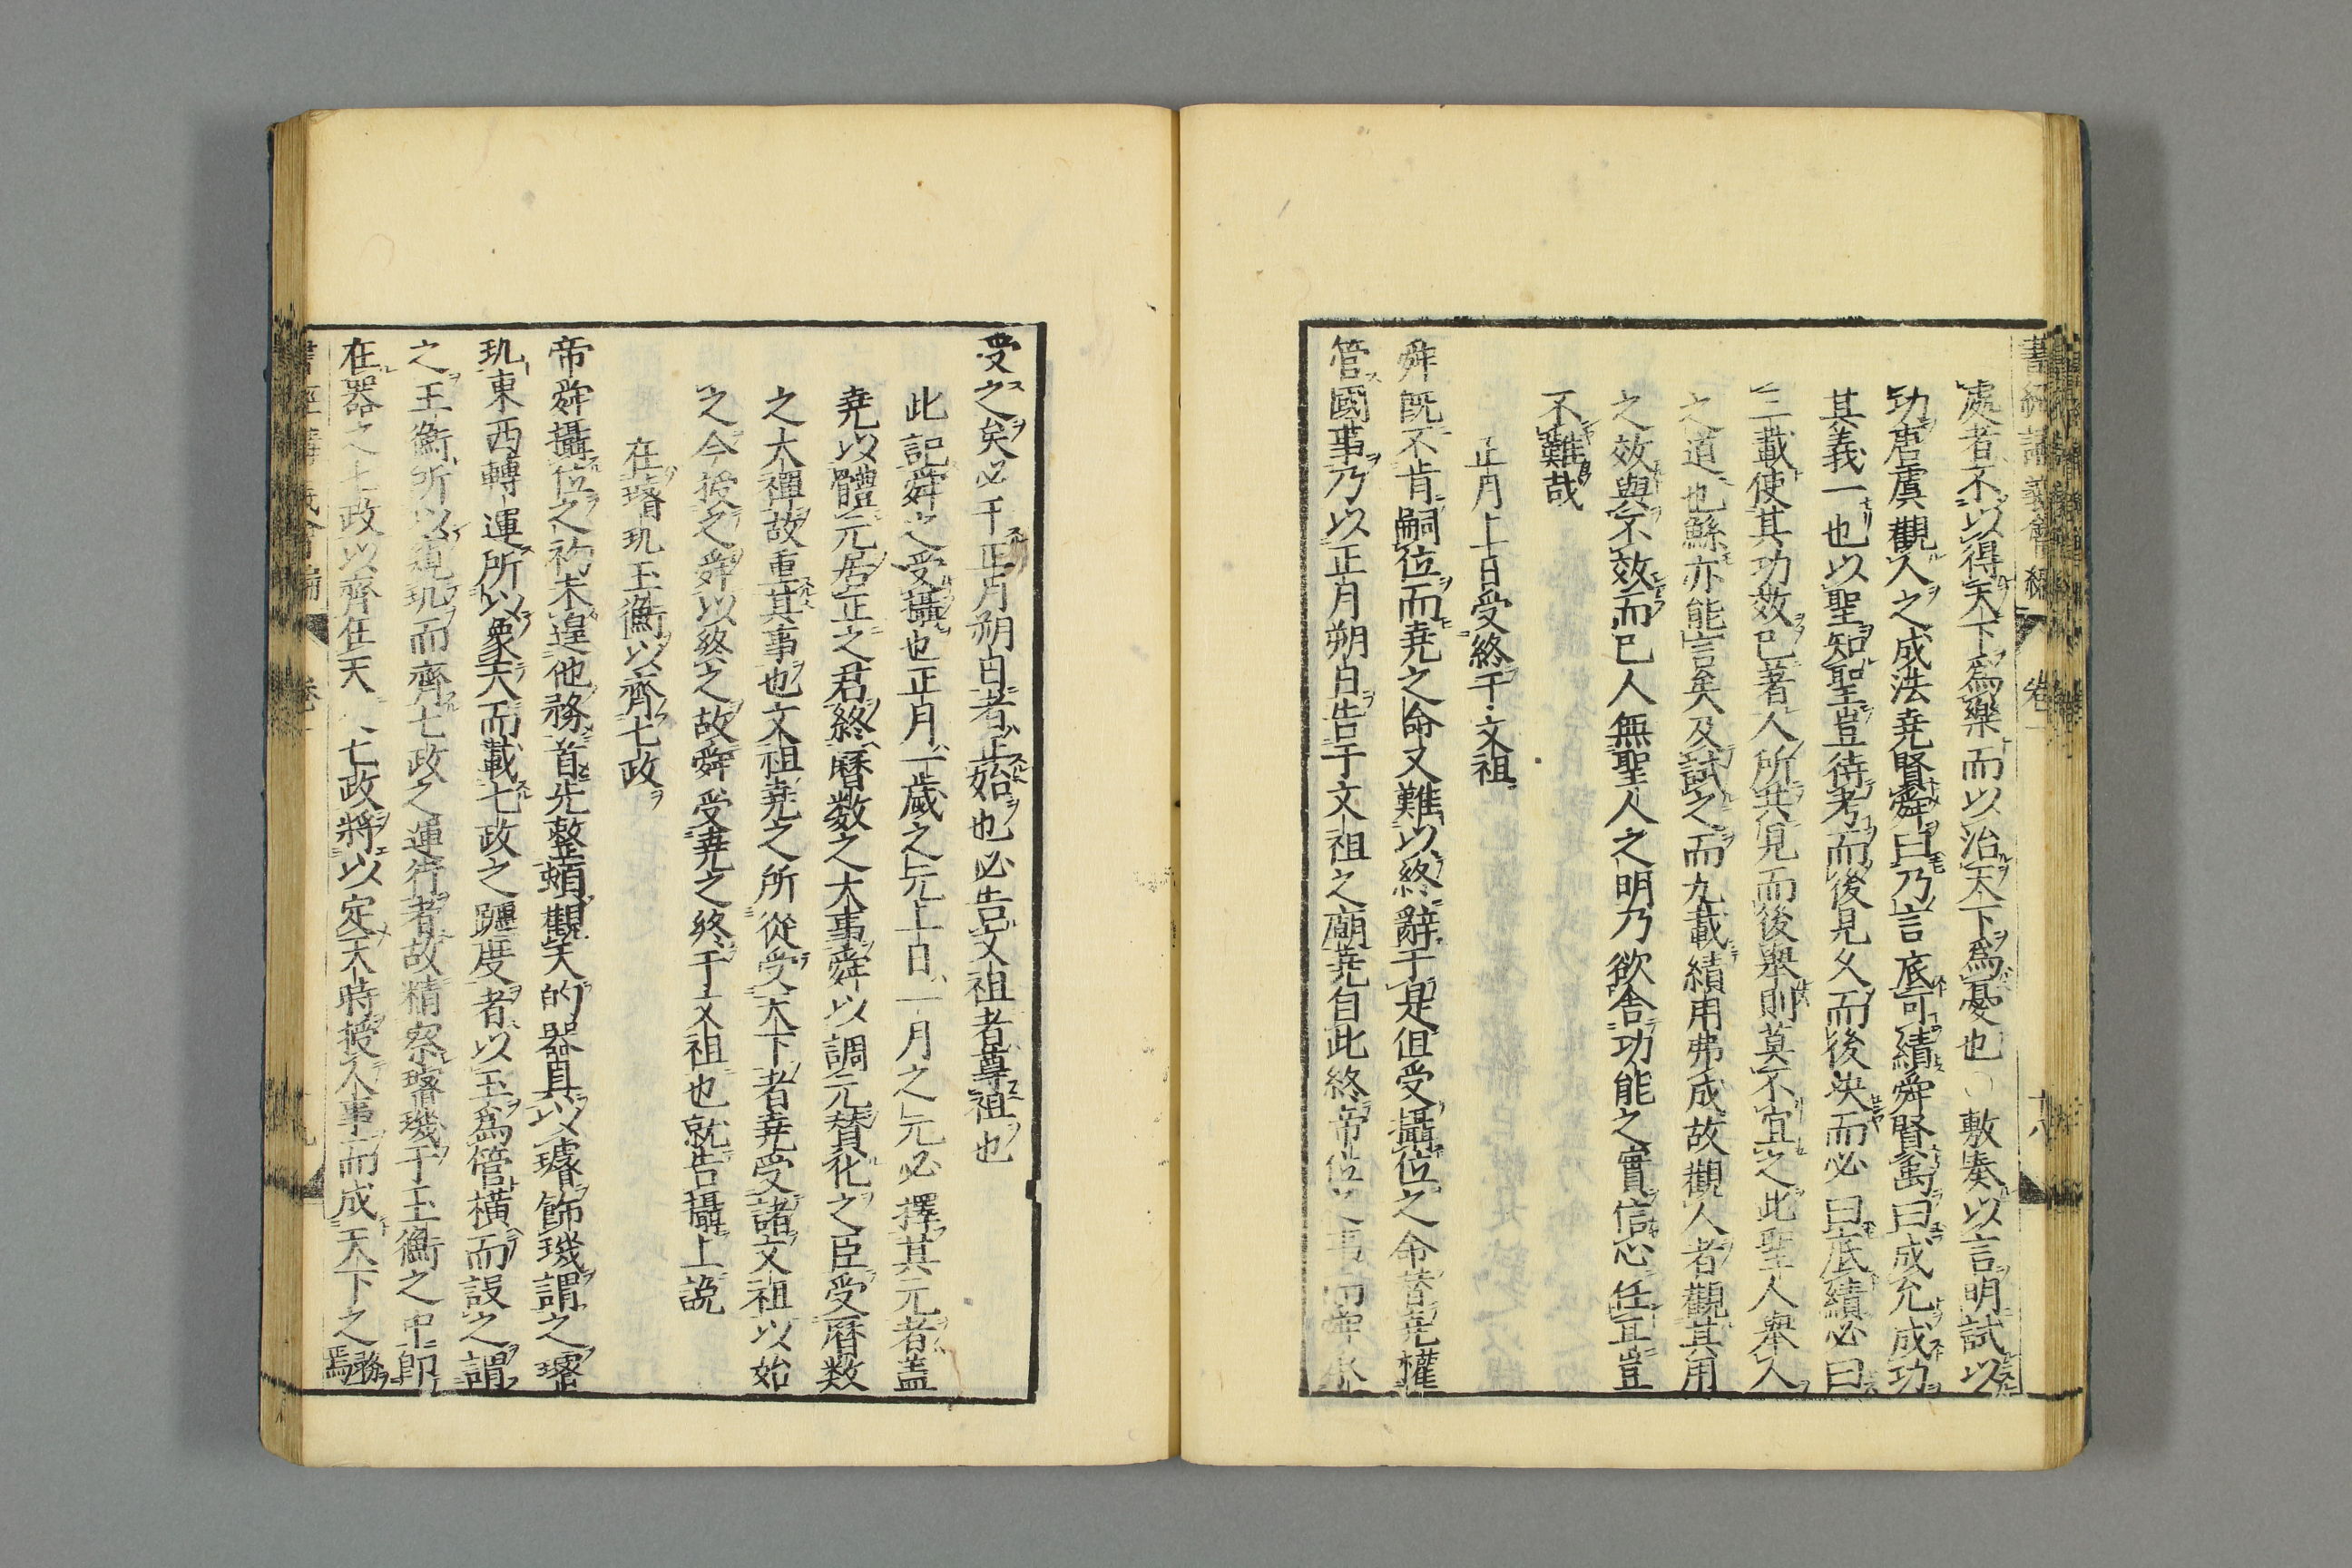 書經講義會編 卷一 十八
處者不以得天下爲樂而以治天下爲憂也○敷奏以言明試以
功唐虞觀人之成法堯賢舜曰乃言底可績舜賢禹曰成允成功
其義一也以聖知聖豈待考而後見久而後決而必曰底績必曰
三載使其功效已著人所共見而後舉則莫不宜之此聖人舉人
之道也鯀亦能言矣及試之而九載績用弗成故觀人者觀其用
之效與不效而已人無聖人之明乃欲舍功能之實信心任耳豈
不難哉
正月上日受終于文祖
舜既不肯嗣位而堯之命又難以終辭于是但受攝位之命替堯權
管國事乃以正月朔日告于文祖之廟堯自此終帝位之事而舜承
受之矣必于正月朔日者正始也必告文祖者尊祖也
此記舜之受攝也正月一歲之元上日一月之元必擇其元者蓋
堯以體元居正之君終曆数之大事舜以調元賛化之臣受曆数
之大禪故重其事也文祖堯之所從受天下者堯受諸文祖以始
之今授之舜以終之故舜受堯之終于文祖也就告攝上說
在璿玑玉衡以齊七政
帝舜攝位之初未遑他務首先整頓觀天的器具以璿飾璣謂之璿
玑東西轉運所以象天而載七政之躔度者以玉爲管橫而設之謂
之玉衡所以窺玑而齊七政之運行者故精察璿璣于玉衡之中即
在器之七政以齊在天 七政將以定天時授人事而成天下之務焉
書經講義會編 卷一